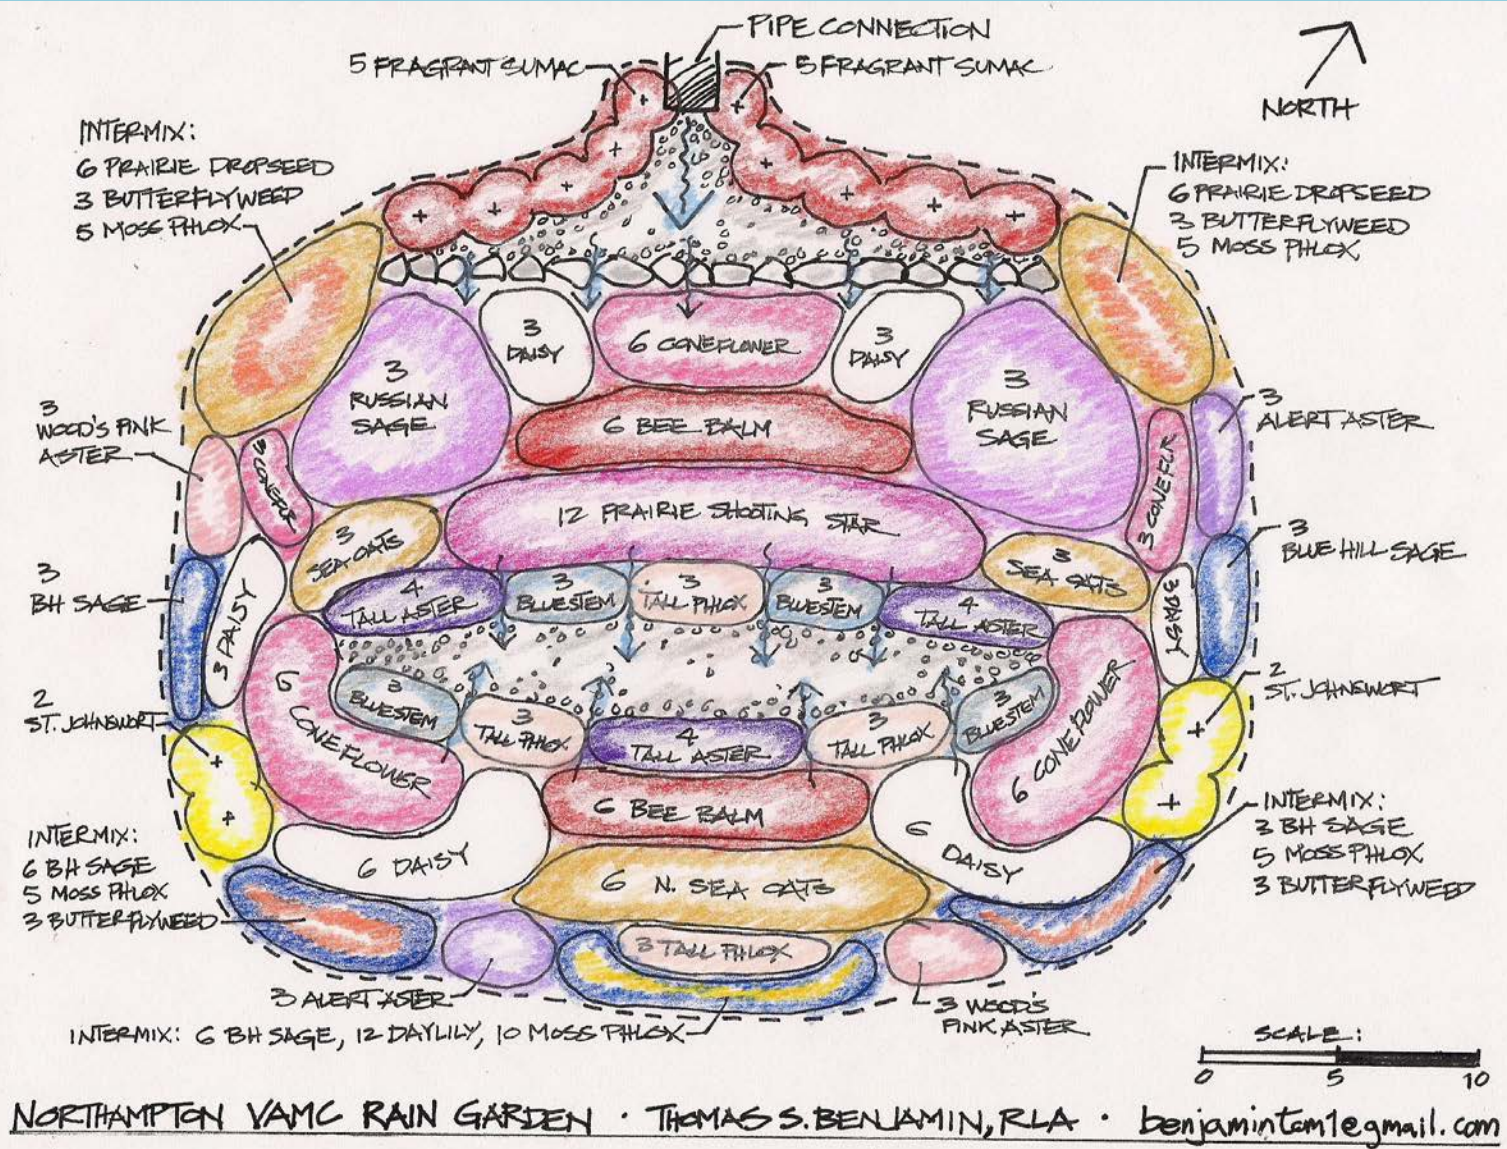 PIPE CONNECTION
5 FRAGRANT SUMAC
5 FRAGRANT SUMAC
NORTH
INTERMIX:
6 PRAIRIE DROPSEED
3 BUTTERFLYWEED
5 MOSS PHLOX
INTERMIX:
6 PRAIRIE DROPSEED
3 BUTTERFLYWEED
5 MOSS PHLOX
3
DAISY
6 CONEFLOWER
3
DAISY
3
RUSSIAN
SAGE
3
RUSSIAN
SAGE
6 BEE BALM
3
WOOD'S PINK
ASTER
3 CONEFLR
3 CONEFLR
3
ALERT ASTER
12 PRAIRIE SHOOTING STAR
3
SEA OATS
3
SEA OATS
3
BLUE HILL SAGE
3
BH SAGE
3 DAISY
4
TALL ASTER
3
BLUESTEM
3
TALL PHLOX
3
BLUESTEM
4
TALL ASTER
3 DAISY
2
ST. JOHNSWORT
6 CONEFLOWER
3
BLUESTEM
3
TALL PHLOX
4
TALL ASTER
3
TALL PHLOX
3
BLUESTEM
6 CONEFLOWER
2
ST. JOHNSWORT
6 BEE BALM
6 DAISY
6
DAISY
INTERMIX:
6 BH SAGE
5 MOSS PHLOX
3 BUTTERFLYWEED
INTERMIX:
3 BH SAGE
5 MOSS PHLOX
3 BUTTERFLYWEED
6 N. SEA OATS
3 TALL PHLOX
3 ALERT ASTER
3 WOOD'S
PINK ASTER
INTERMIX: 6 BH SAGE, 12 DAYLILY, 10 MOSS PHLOX
SCALE:
0 5 10
NORTHAMPTON VAMC RAIN GARDEN · THOMAS S. BENJAMIN, RLA · benjamintom1@gmail.com